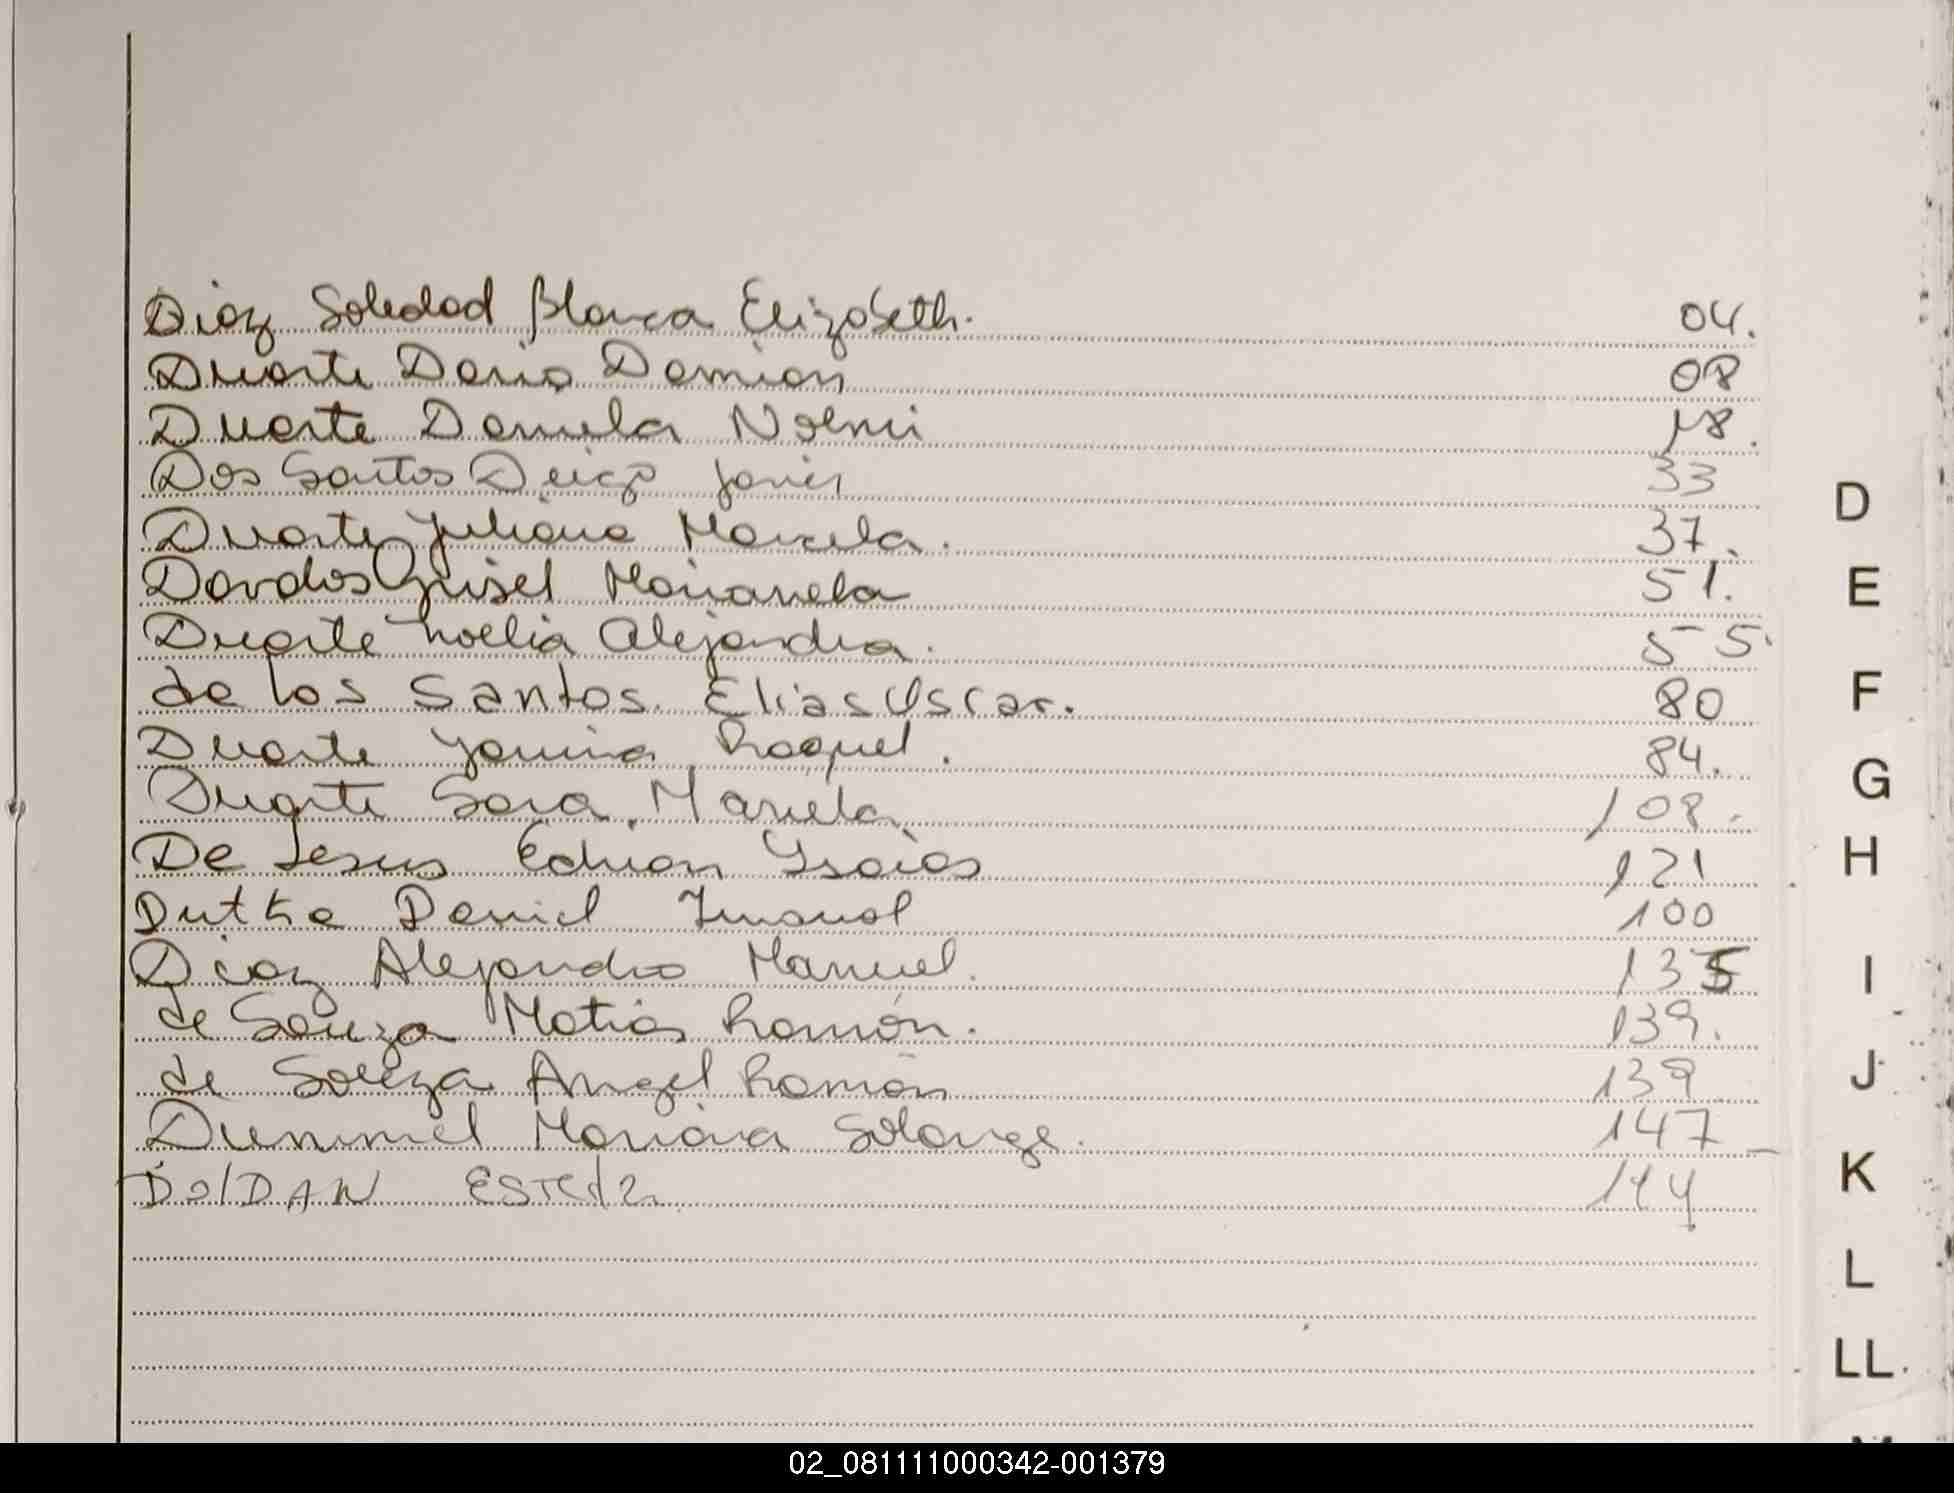 Diaz Soledad Blanca Elizabeth. 04.
Duarte Dario Damian 08
Duarte Daniela Noemi 18.
Dos Santos Deigo Javier 33
Duarte Juliana Marcela. 37.
Dardos Grisel Marianela 51.
Duarte Noelia Alejandra. 55.
de los Santos Elias Oscar. 80
Duarte Yanina Raquel. 84.
Duarte Sara Mariela 108.
De Jesus Edison Ysaias 121
Dutke Daniel 100
Diaz Alejandro Manuel. 135
de Souza Matias Ramón. 139.
de Souza Angel Ramón 139
Dummel Mariana Solange. 147
DolDAN Ester 144
D
E
F
G
H
I
J
K
L
LL
02_081111000342-001379